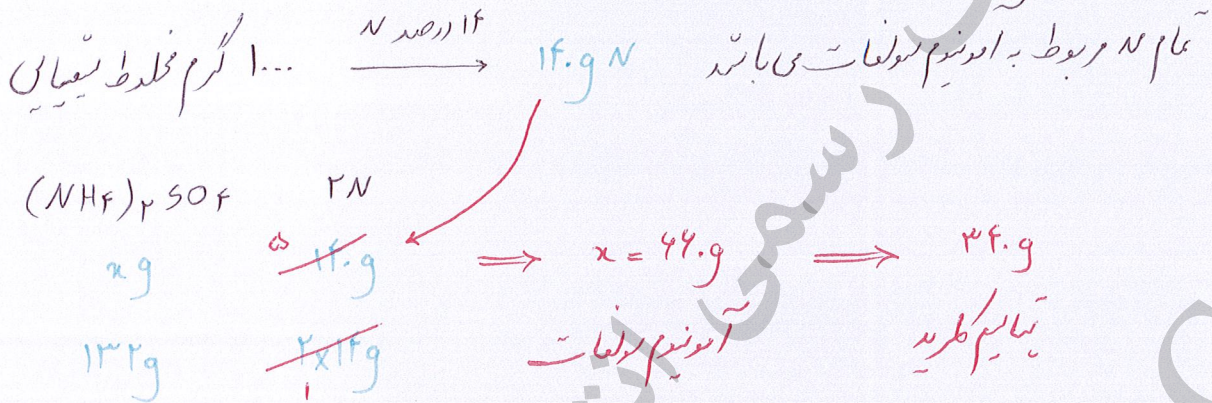 ۱۰۰۰ گرم مخلوط شیمیایی ۱۴ درصد N ۱۴۰g N تمام N مربوط به آمونیوم سولفات می باشد
(NH۴)۲ SO۴ ۲N
xg ۱۴۰g ۵ ⇒ x = ۶۶۰g ⇒ ۳۴۰g
۱۳۲g ۲x۱۴g ۱ آمونیوم سولفات پتاسیم کلرید
رسمی از